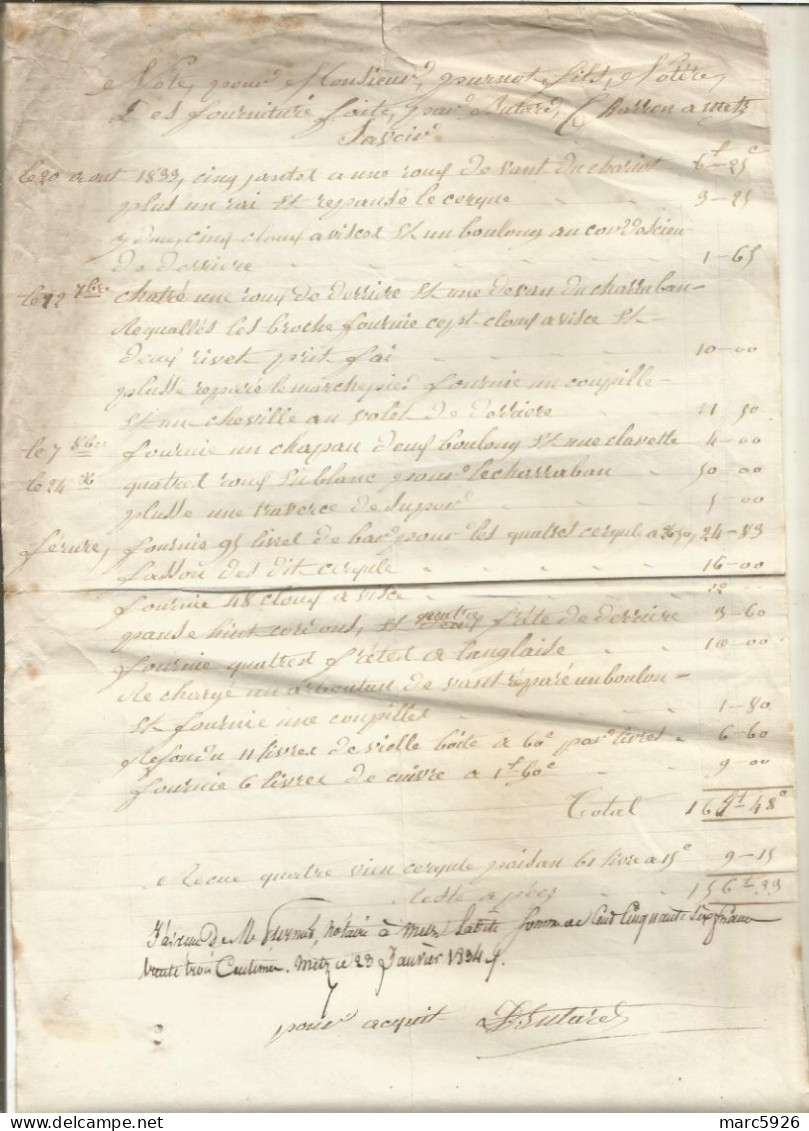 Note, pour Monsieur, purnot, fils, Notère,
Des fourniture faite, par Dutard, Charron a Metz
Savoir
le 20 aout 1833, cinq jantes a une rouf de vant du chariot 6f-25c
plus un rai et repansé le cerque 3-25
cinq clouf a visces et un boulong au
de derriere 1-65
le 22 7bre chatré une rouf de derrire et une devan du charraban
les broche fournie cept clouf a visce et
deuf rivet prit fai 10-00
plusse reparé le marchepied fournie un coupille
et un cheville au volet de derriere 11 50
le 7 8bre fournie un chapan deuf boulong et une clavette 4-00
le 24 quatres rouf enblanc pour le charraban 50-00
plusse une traverce de supor 5-00
férure, fournie 95 livres de bar pour les quatres cerqule a 24-83
fasson des dit cerqule 16-00
fournie 48 clouf a visce
panse huit cordons, et quatre frète de derrire 3-60
fournie quatres frètes a langlaise 10-00
Re chargé un de vant réparé un boulon
et fournie une coupilles 1-80
Refondu 11 livres de vielle boîte a 60c par livres 6-60
fournie 6 livres de cuivre a 1f 60c 9-00
Total 165f-48c
Recue quatre vien cerqule paisan 61 livre a 15c 9-15
Reste a péez 156f-33
J'ai reçu de Mr Purnot, notaire à Metz laditte somme de Cent Cinquante six francs
trente trois Centimes. Metz ce 23 Janvier 1834.
pour acquit Dutard
marc5926